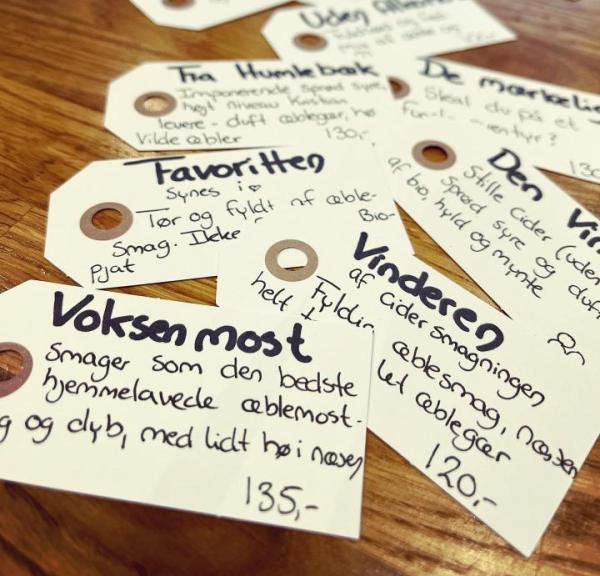 Uden
Fra Humlebæk
Imponerende sprød syre,
højt niveau
levere - duft æblegær, 
Vilde æbler
130,-
De
Skal du på et
130
Favoritten
Synes i
Tør og fyldt af æble-
Smag. Ikke
Pjat
Bio-
Den
Stille Cider (uden
Sprød syre og duft
af bio, hyld og mynte
Vinderen
af Cidersmagningen
æblesmag, næsten
let æblegær
helt
120,-
Voksenmost
Smager som den bedste
hjemmelavede æblemost.
og dyb, med lidt hø i næsen
135,-